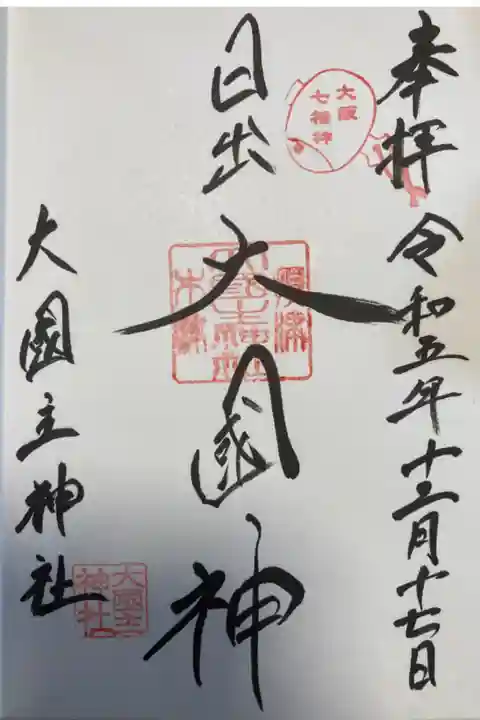 奉拝
令和五年十二月十七日
大阪
七福神
日出
大國神
大國主神社
大國主
神社